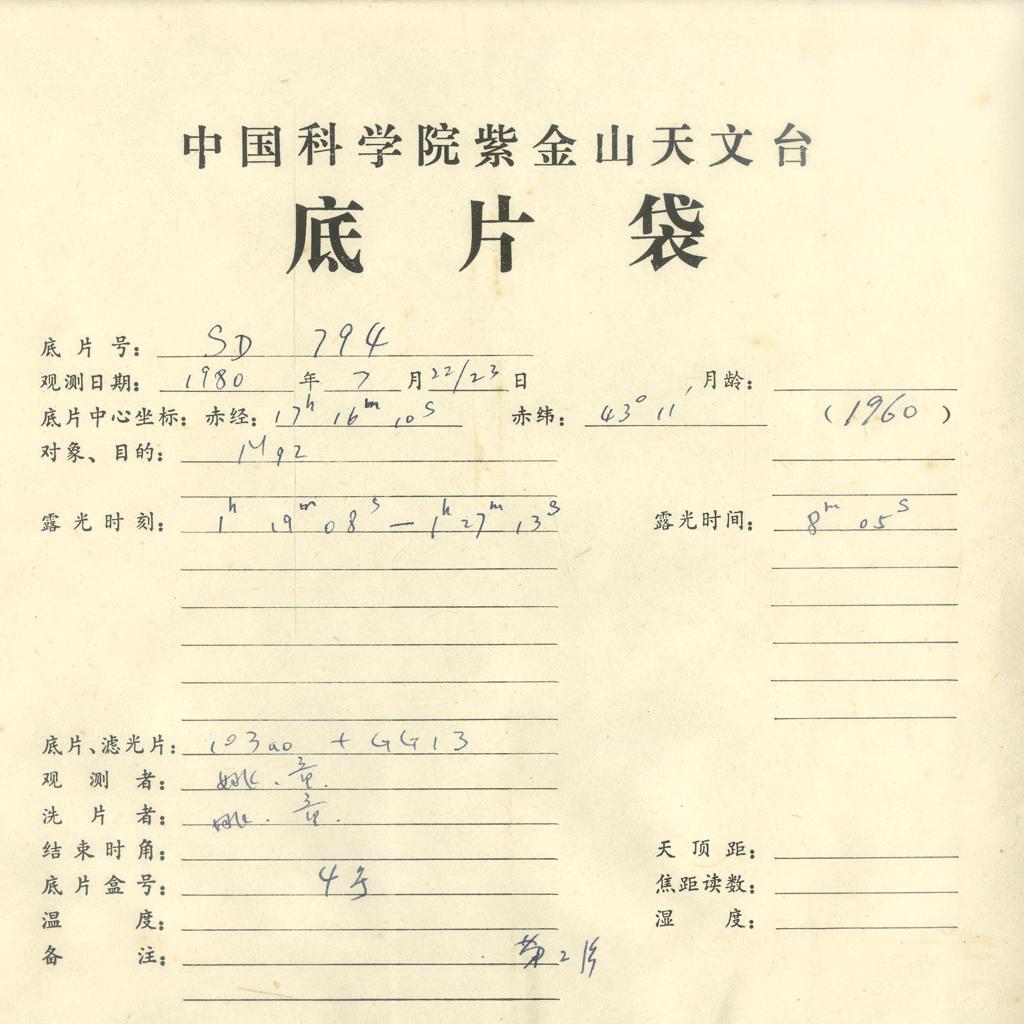 中国科学院紫金山天文台
底片袋
底片号： SD 794
观测日期： 1980 年 7 月 22/23 日 月龄：
底片中心坐标： 赤经： 17h 16m 10s 赤纬： 43° 11′ (1960)
对象、目的： M92
露光时刻： 1h 19m 08s — 1h 27m 13s 露光时间： 8m 05s
底片、滤光片： 103aO + GG13
观测者： 姚.
洗片者： 姚.
结束时角： 天顶距：
底片盒号： 4号 焦距读数：
温度： 湿度：
备注： 第2片